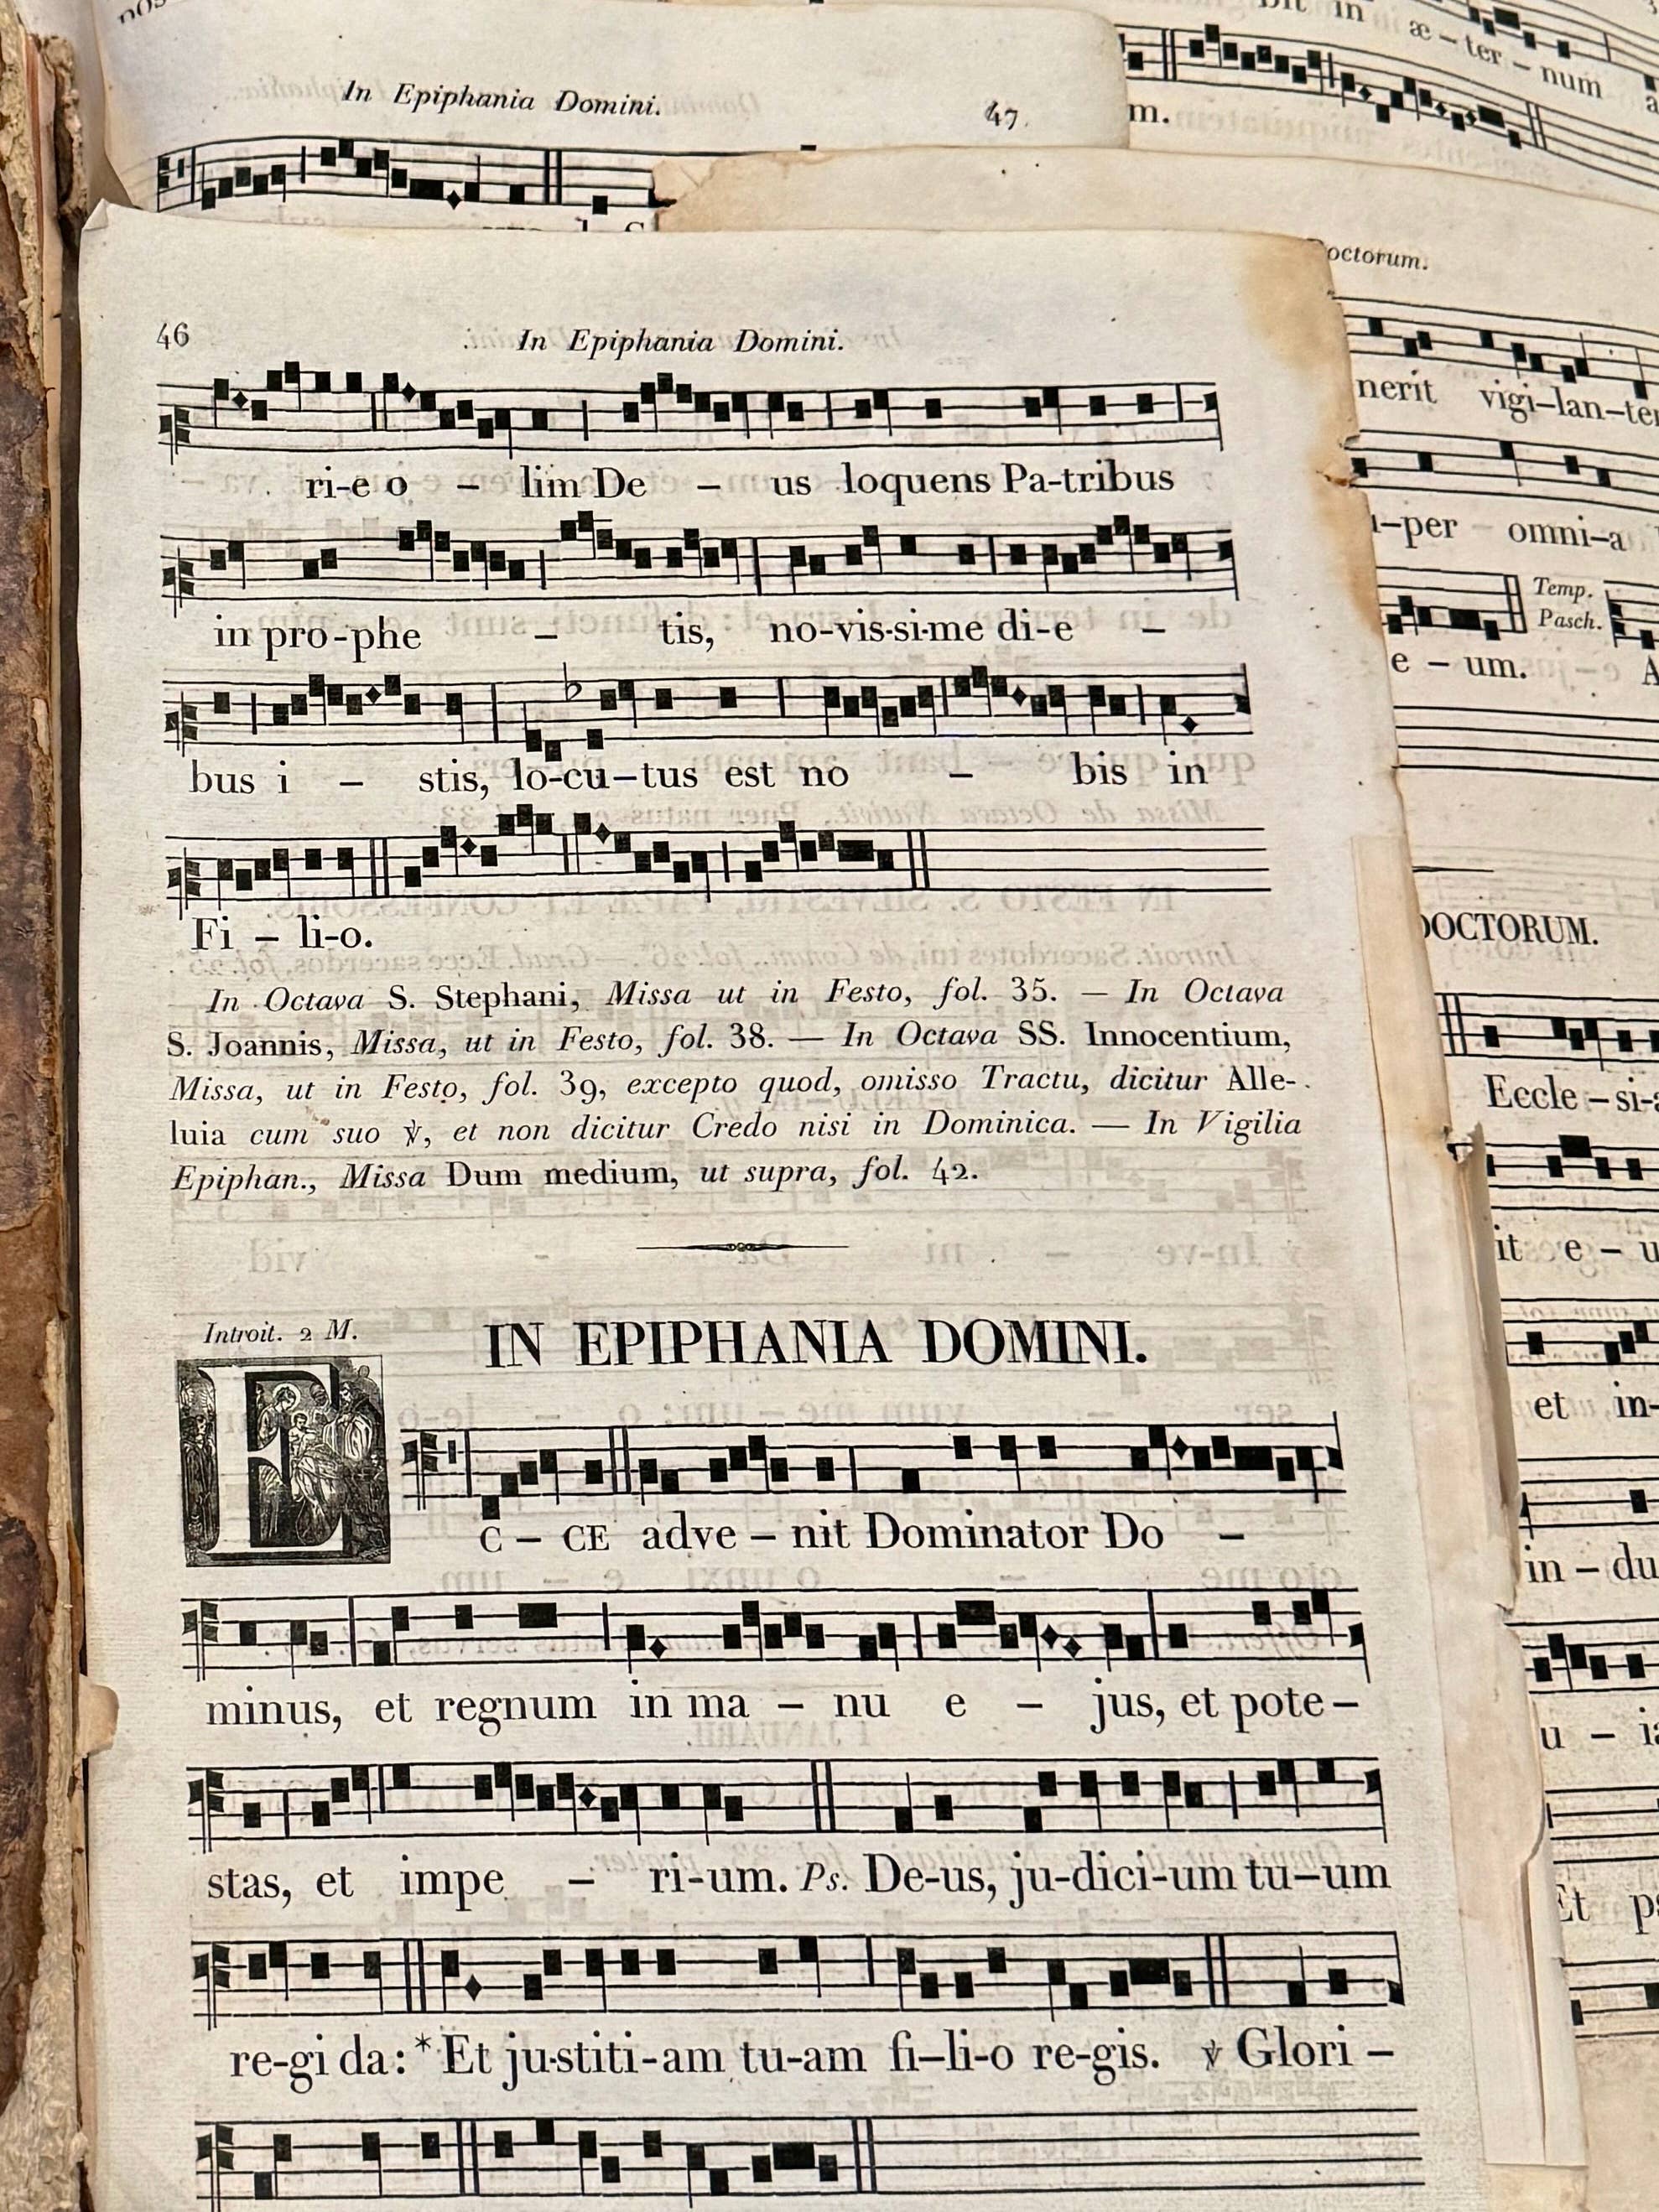 In Epiphania Domini. 47.
bit in æ – ter – num
m.
46 In Epiphania Domini.
ri-e o – lim De – us loquens Pa-tribus
in pro-phe – tis, no-vis-si-me di-e –
bus i – stis, lo-cu–tus est no – bis in
Fi – li-o.
In Octava S. Stephani, Missa ut in Festo, fol. 35. — In Octava
S. Joannis, Missa, ut in Festo, fol. 38. — In Octava SS. Innocentium,
Missa, ut in Festo, fol. 39, excepto quod, omisso Tractu, dicitur Alle-
luia cum suo ℣, et non dicitur Credo nisi in Dominica. — In Vigilia
Epiphan., Missa Dum medium, ut supra, fol. 42.
Introit. 2 M. IN EPIPHANIA DOMINI.
EC – CE adve – nit Dominator Do –
minus, et regnum in ma – nu e – jus, et pote–
stas, et impe – ri-um. Ps. De-us, ju-dici-um tu–um
re-gi da: * Et ju-stiti-am tu-am fi–li-o re-gis. ℣ Glori –
octorum.
nerit vigi–lan–ter
–per omni–a
Temp.
Pasch.
e – um. A
OCTORUM.
Eccle – si-a
it e – u
et in-
in – du
u – ia
Et ps